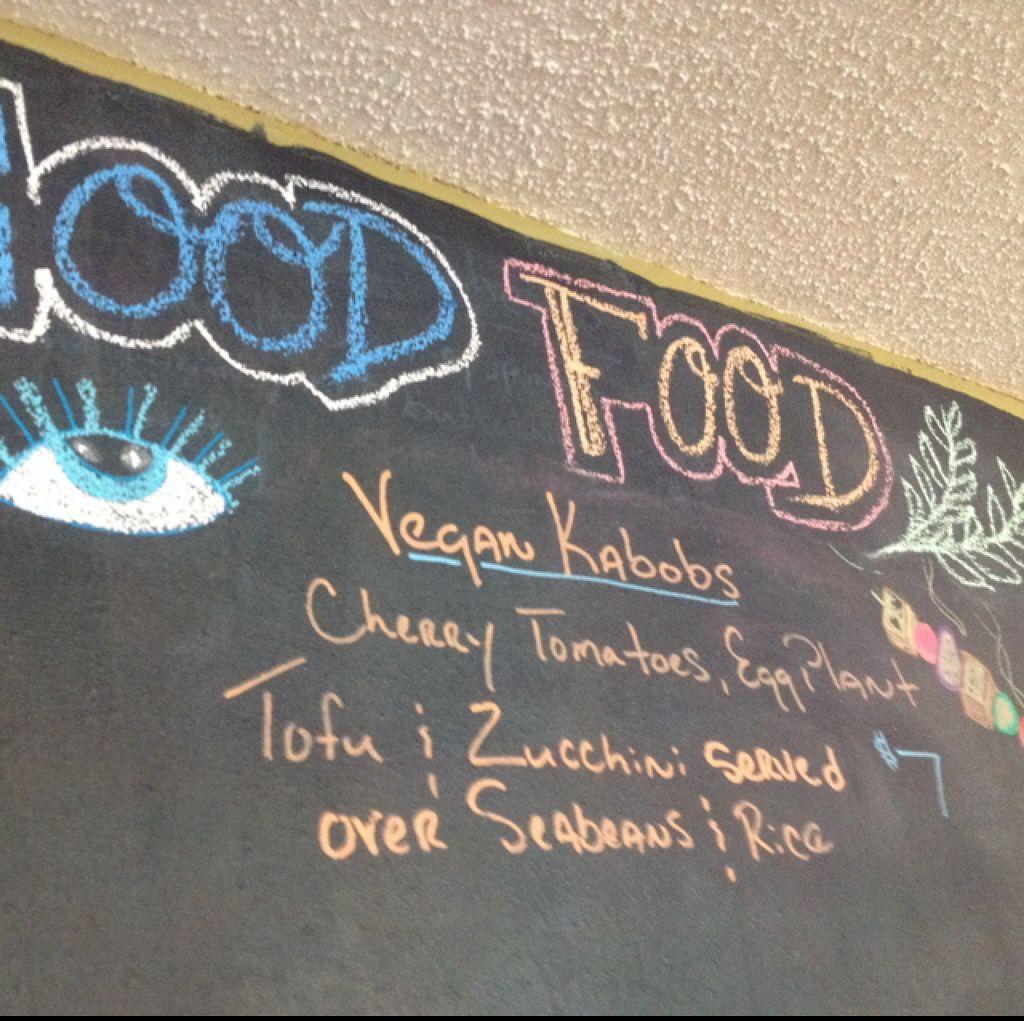 GOOD FOOD
Vegan Kabobs
Cherry Tomatoes, EggPlant
Tofu & Zucchini served
over Seabeans & Rice
$7